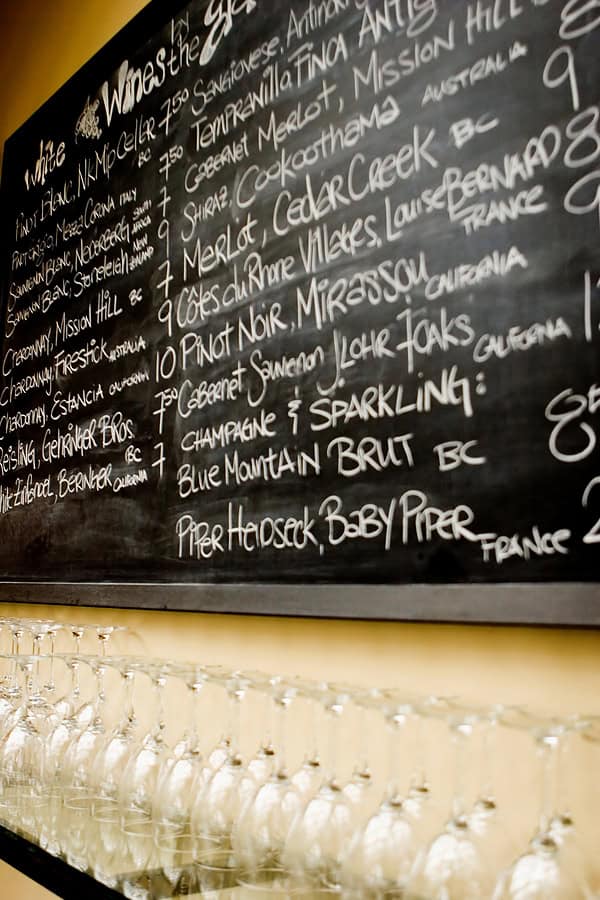 white Wines by the
Pinot Blanc, NkMip Cellar BC 750
Mezza Corona Italy 750
Sauvignon Blanc, Nederberg South Africa 7
Sauvignon Blanc, Stoneleigh New Zealand 9
Chardonnay, Mission Hill BC 7
Chardonnay, Firestick Australia 9
Chardonnay, Estancia California 10
Reisling, Gehringer Bros BC 750
Zinfandel, Beringer California 7
Sangiovese,
Tempranillo, Finca Antig
Cabernet Merlot, Mission Hill
Shiraz, Cookoothama Australia 9
Merlot, Cedar Creek BC 8
Côtes du Rhone Villages, Louise Bernard France 9
Pinot Noir, Mirassou California
Cabernet Sauvenon J Lohr 7 oaks California 1
Champagne & Sparkling:
Blue Mountain Brut BC 85
Piper Heidseck, Baby Piper France 2